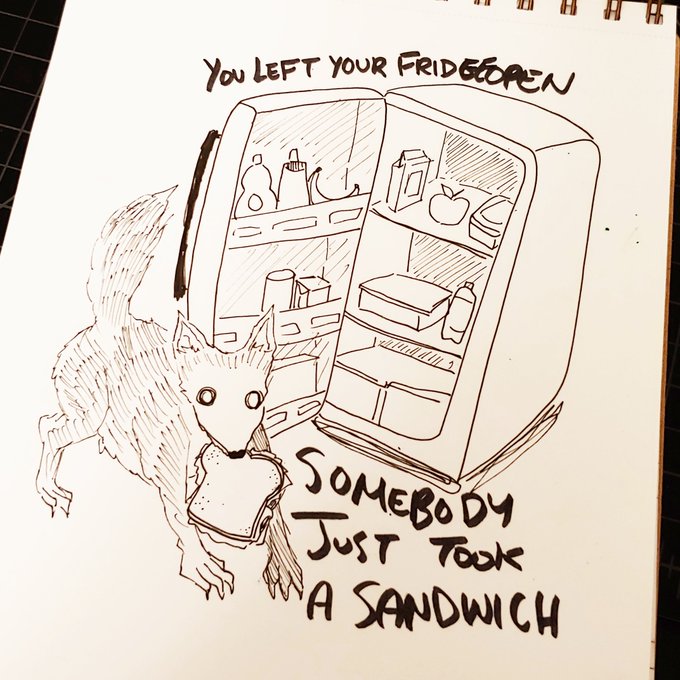 YOU LEFT YOUR FRIDGE OPEN
SOMEBODY
JUST TOOK
A SANDWICH